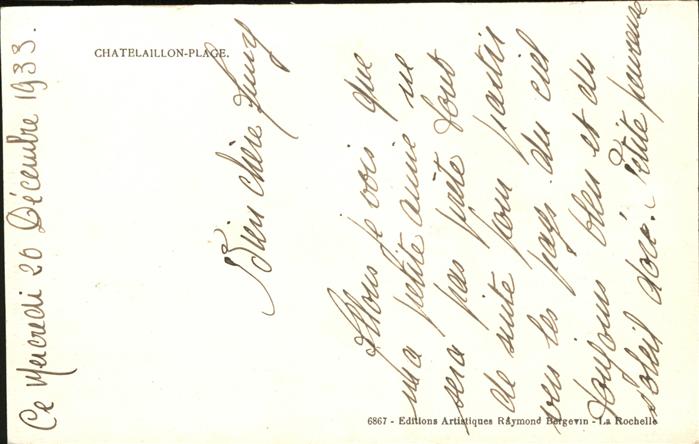 CHATELAILLON-PLAGE.
Ce Mercredi 20 Décembre 1933.
Bien chère
Allons je vois que
ma petite amie ne
sera pas prête tout
de suite pour partir
vers les pays du ciel
toujours bleu et du
soleil doré. Petite peureuse
6867 - Editions Artistiques Raymond Bergevin - La Rochelle